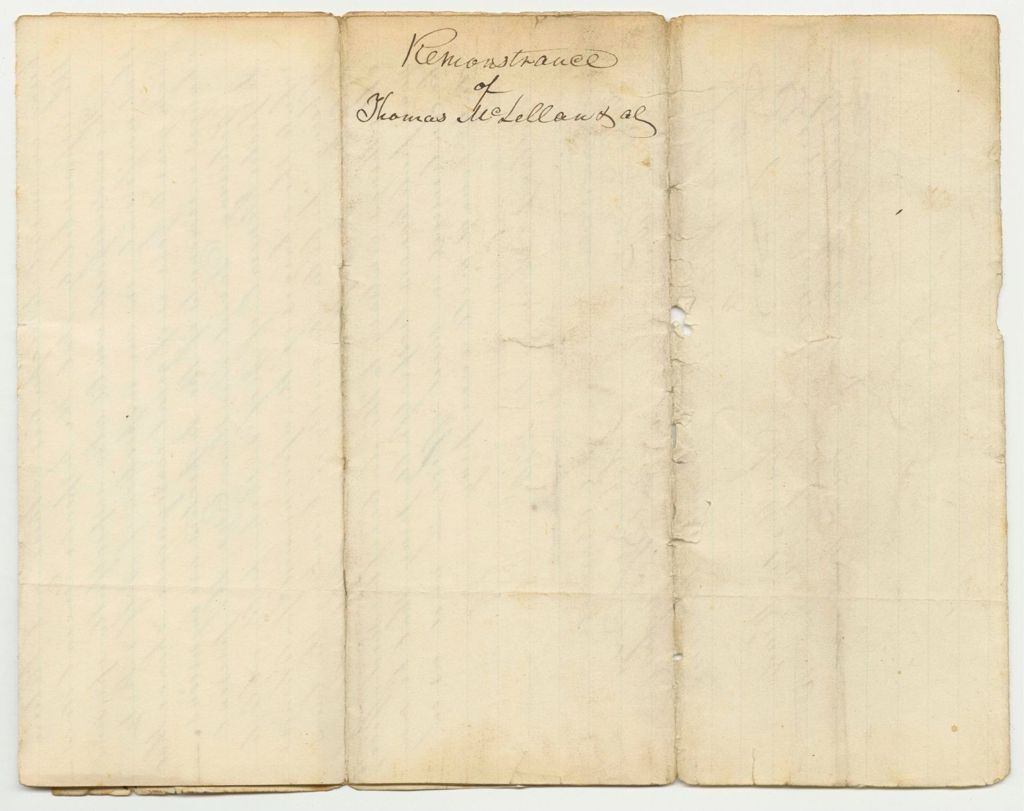 Remonstrance
of
Thomas McLellan & al